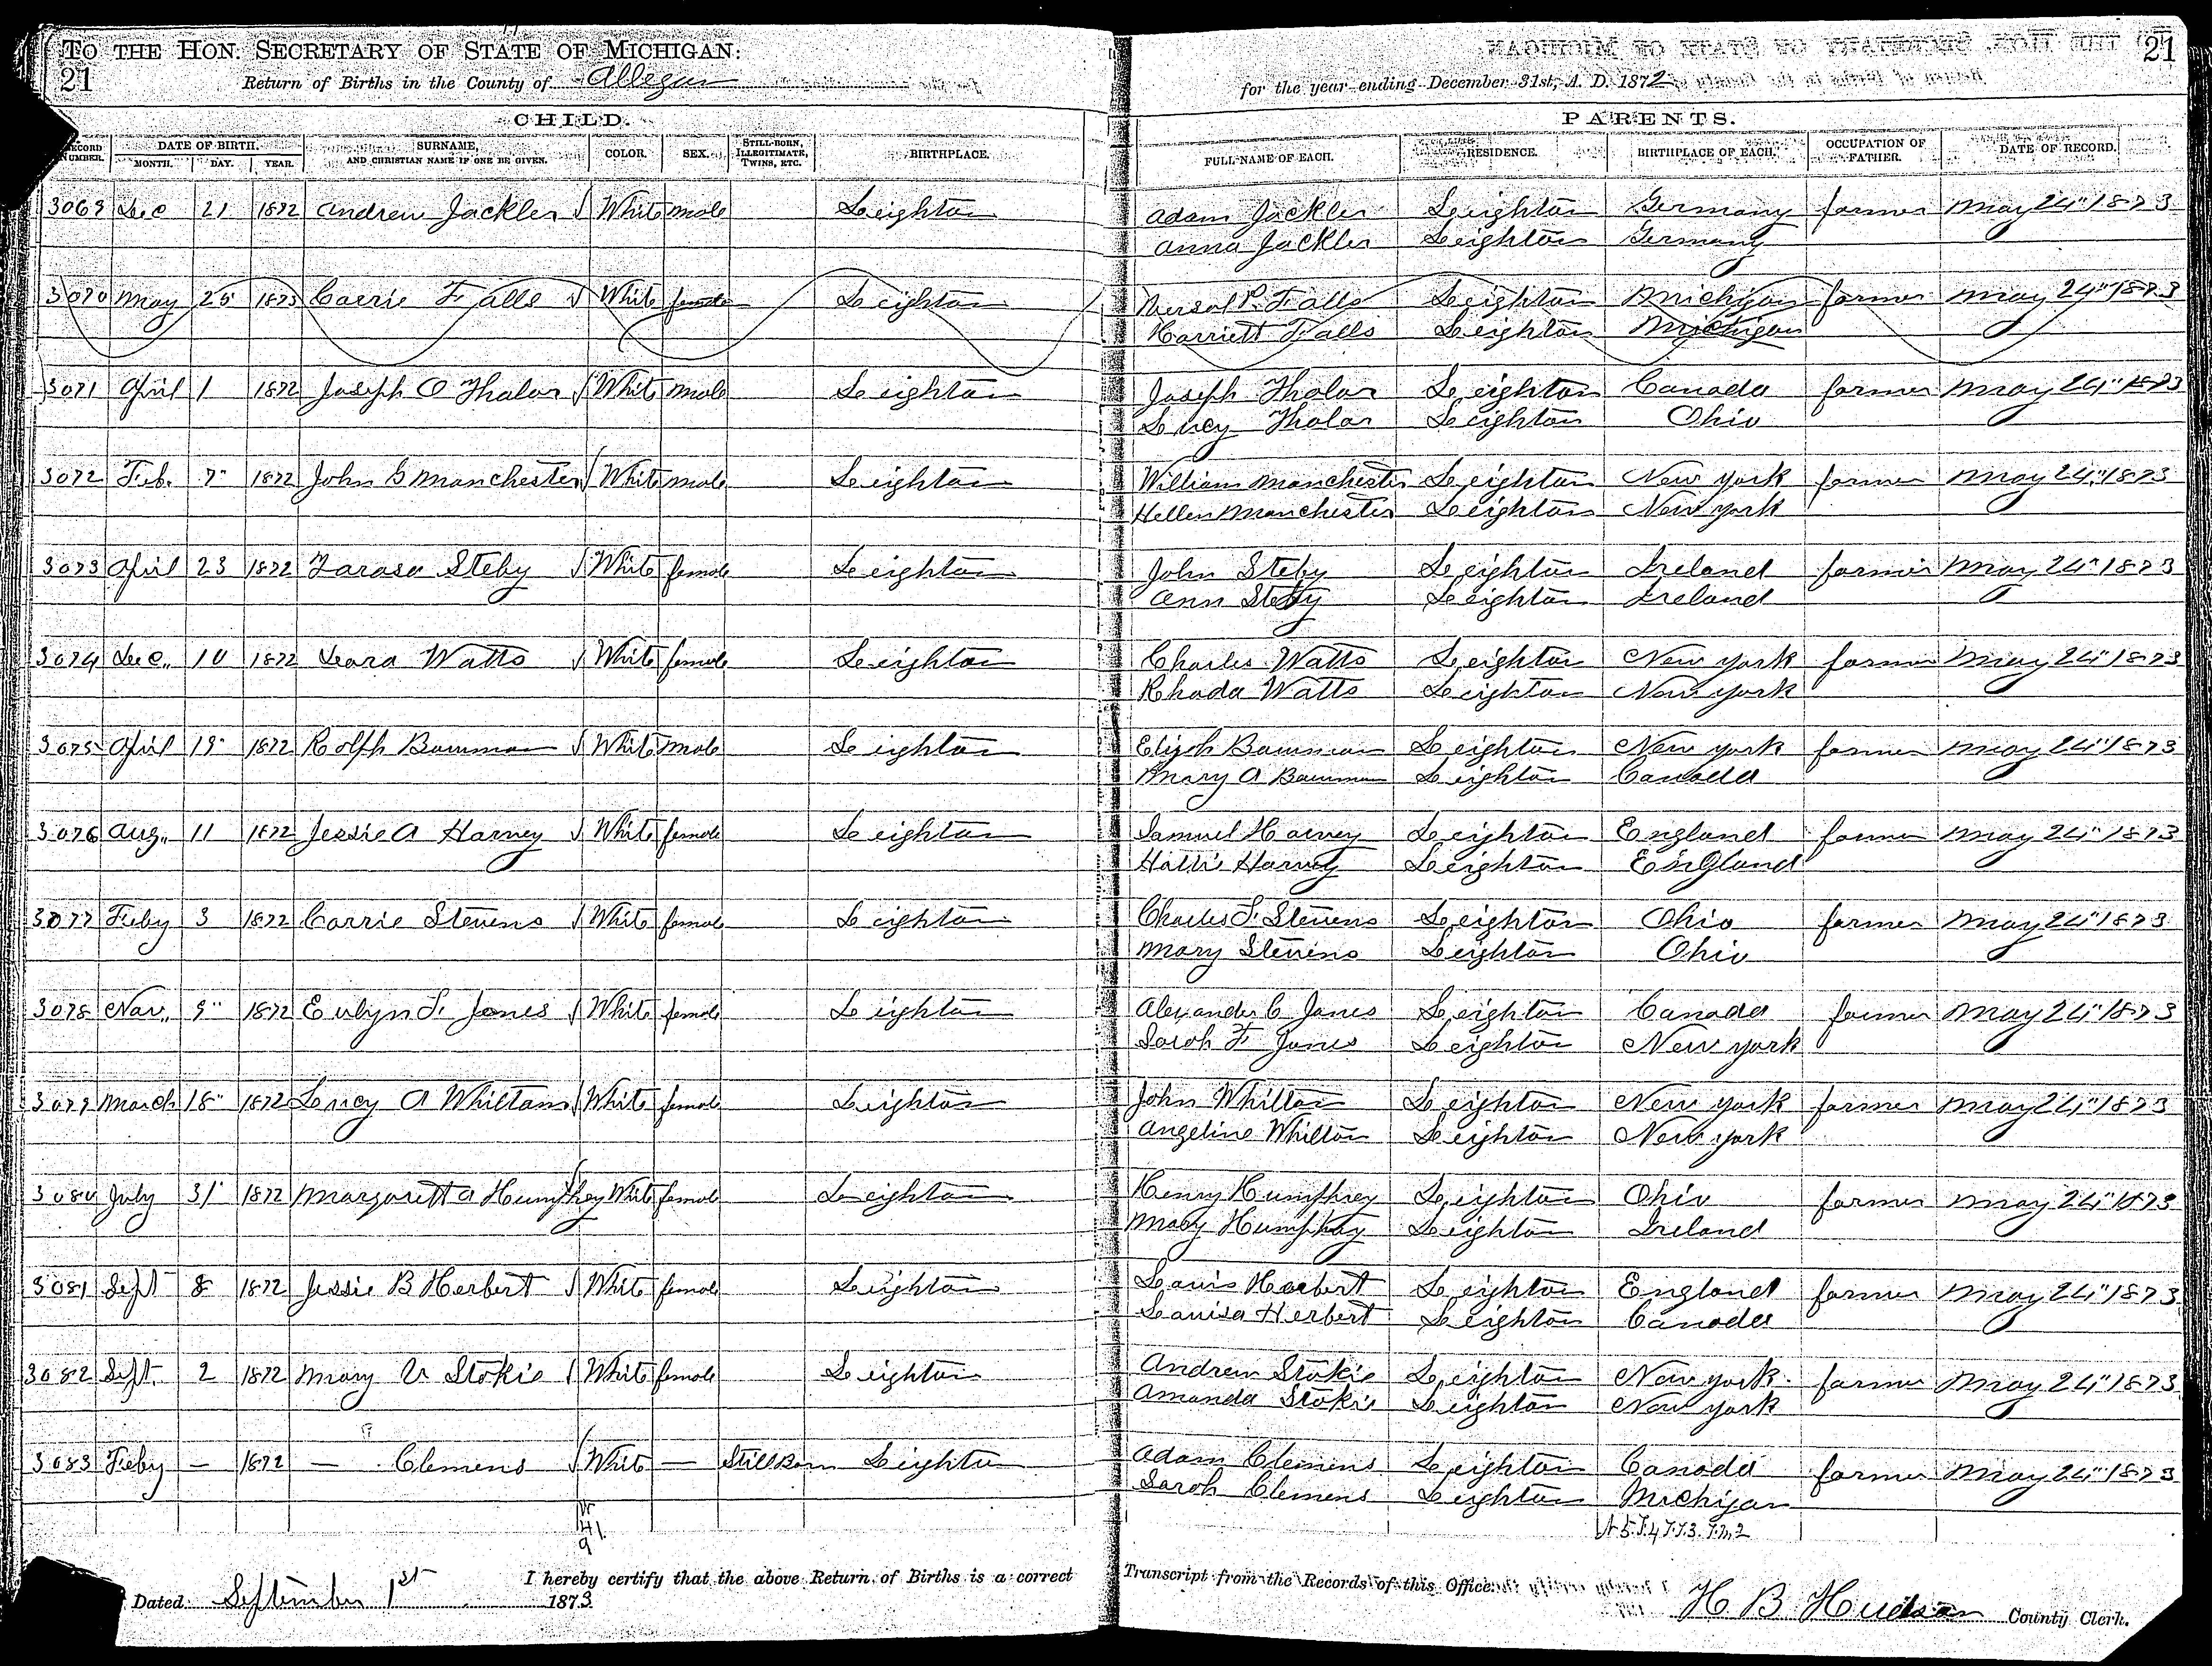 TO THE HON. SECRETARY OF STATE OF MICHIGAN:
21
Return of Births in the County of Allegan
for the year ending December 31st, A. D. 1872
21
CHILD.
PARENTS.
RECORD NUMBER.
DATE OF BIRTH.
MONTH. DAY. YEAR.
SURNAME, AND CHRISTIAN NAME IF ONE BE GIVEN.
COLOR.
SEX.
STILL-BORN, ILLEGITIMATE, TWINS, ETC.
BIRTHPLACE.
FULL NAME OF EACH.
RESIDENCE.
BIRTHPLACE OF EACH.
OCCUPATION OF FATHER.
DATE OF RECORD.
3069 Dec 21 1872 Andrew Jackler White male Leighton Adam Jackler Leighton Germany farmer May 24" 1873
Anna Jackler Leighton Germany
3070 May 25 1873 Carrie Falls White female Leighton P. Falls Leighton Michigan farmer May 24" 1873
Harriett Falls Leighton Michigan
3071 April 1 1872 Joseph O Thalor White male Leighton Joseph Tholor Leighton Canada farmer May 24" 1873
Lucy Tholor Leighton Ohio
3072 Feb. 7" 1872 John G Manchester White male Leighton William Manchester Leighton New York farmer May 24" 1873
Hellen Manchester Leighton New York
3073 April 23 1872 Tarasa Steby White female Leighton John Steby Leighton Ireland farmer May 24" 1873
Ann Steby Leighton Ireland
3074 Dec. 10 1872 Leara Watts White female Leighton Charles Watts Leighton New York farmer May 24" 1873
Rhoda Watts Leighton New York
3075 April 19" 1872 Rolph Bowman White male Leighton Elijah Bowman Leighton New York farmer May 24" 1873
Mary A Bowman Leighton Canada
3076 Aug. 11 1872 Jessie A Harvey White female Leighton Samuel Harvey Leighton England farmer May 24" 1873
Hattie Harvey Leighton England
3077 Feby 3 1872 Carrie Stevens White female Leighton Charles F. Stevens Leighton Ohio farmer May 24" 1873
Mary Stevens Leighton Ohio
3078 Nov. 9" 1872 Evelyn F. Jones White female Leighton Alexander C Jones Leighton Canada farmer May 24" 1873
Sarah F Jones Leighton New York
3079 March 18" 1872 Lucy A Whiltans White female Leighton John Whilton Leighton New York farmer May 24" 1873
Angeline Whilton Leighton New York
3080 July 31" 1872 Margarett A Humphey White female Leighton Henry Humphrey Leighton Ohio farmer May 24" 1873
Mary Humphrey Leighton Ireland
3081 Sept 8 1872 Jessie B Herbert White female Leighton Lauis Herbert Leighton England farmer May 24" 1873
Lauisa Herbert Leighton Canada
3082 Sept. 2 1872 Mary V Stokie White female Leighton Andrew Stokie Leighton New York farmer May 24" 1873
Amanda Stokie Leighton New York
3083 Feby — 1872 — Clemens White — Stillborn Leighton Adam Clemens Leighton Canada farmer May 24" 1873
Sarah Clemens Leighton Michigan
Dated September 1st 1873
I hereby certify that the above Return of Births is a correct Transcript from the Records of this Office.
H B Hudson County Clerk.